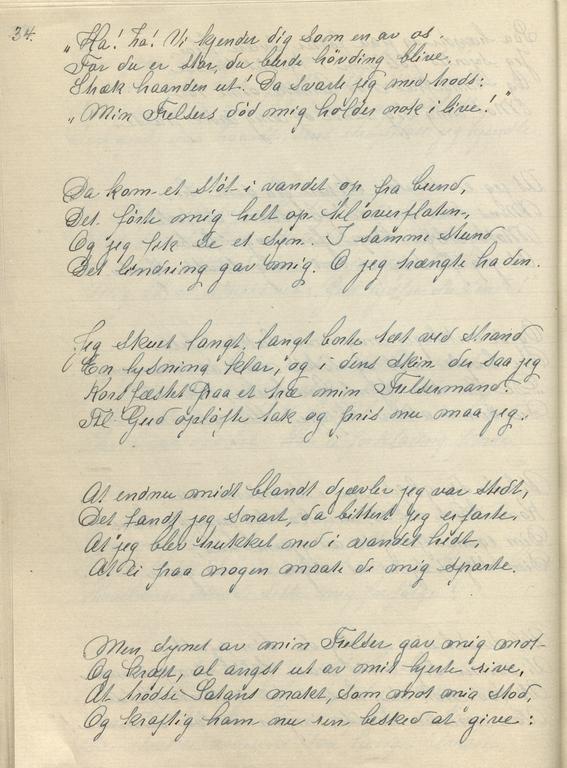 34.
"Ha! ha! Vi kjender dig som en av os.
For du er stor, du burde hövding blive.
Stræk haanden ut! Da svarte jeg med trods:
"Min Frelsers död mig holder nok i live!"
Da kom et stöt i vandet op fra bund,
Det förte mig helt op til overflaten,
Og jeg fik se et syn. I samme stund
Det lindring gav mig. O jeg trængte ha den.
Jeg skuet langt, langt borte tæt ved strand
En lysning klar, og i dens skin der saa jeg
Korsfæstet paa et træ min Frelsermand.
Til Gud oplöfte tak og pris nu maa jeg.
At endnu midt blandt djævler jeg var stedt,
Det fandt jeg snart, da bittert jeg erfarte,
At jeg blev trukket ned i vandet hidt,
At ei paa nogen maate de mig sparte.
Men synet av min Frelser gav mig mot
Og kraft, al angst ut av mit hjerte rive,
At trodse Satans makt, som mot mig stod,
Og kraftig ham nu ren besked at give: